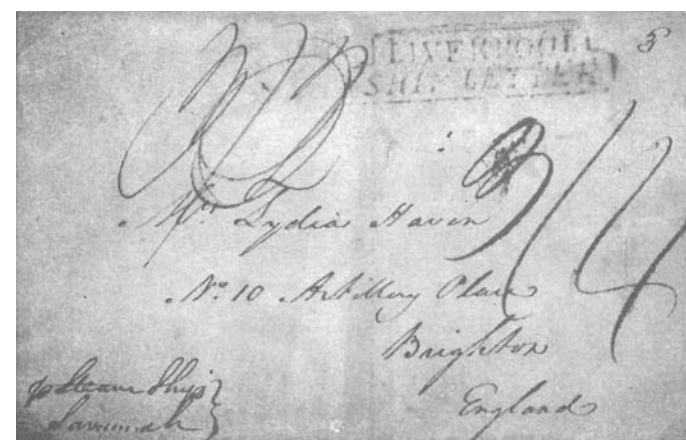 LIVERPOOL
SHIP LETTER
3/4
Mrs. Lydia Havin
No. 10 Artillery Place
Brighton
England
p Steam Ship
Savannah